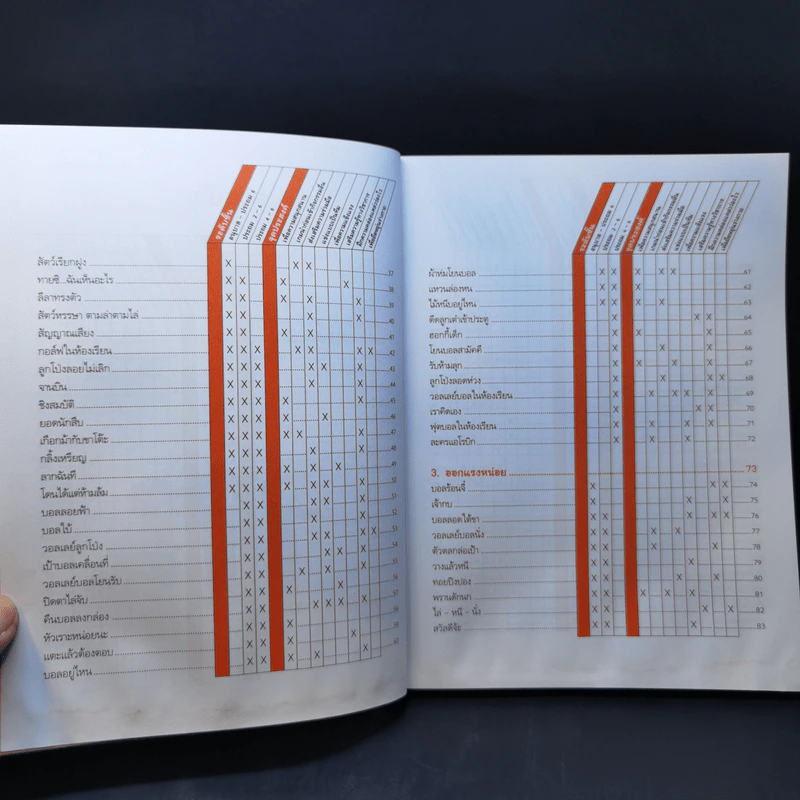 ระดับชั้น
อนุบาล - ประถม 6
ประถม 2 - 6
ประถม 4 - 6
จุดประสงค์
เพื่อความสนุกสนาน
สัตว์เรียกฝูง 37
ทายซิ...ฉันเห็นอะไร 38
ลีลาทรงตัว 39
สัตว์หรรษา ตามล่าตามไล่ 40
สัญญาณเสียง 41
กอล์ฟในห้องเรียน 42
ลูกโป่งลอยไม่เลิก 43
จานบิน 44
ชิงสมบัติ 45
ยอดนักสืบ 46
เกือกม้ากับขาโต๊ะ 47
กลิ้งเหรียญ 48
ลากฉันที 49
โดนได้แต่ห้ามล้ม 50
บอลลอยฟ้า 51
บอลใบ้ 52
วอลเลย์ลูกโป่ง 53
เป้าบอลเคลื่อนที่ 54
วอลเลย์บอลโยนรับ 55
ปิดตาไล่จับ 56
คืนบอลลงกล่อง 57
หัวเราะหน่อยนะ 58
แตะแล้วต้องตอบ 59
บอลอยู่ไหน 60
ระดับชั้น
อนุบาล - ประถม 6
ประถม 2 - 6
ประถม 4 - 6
จุดประสงค์
เพื่อความสนุกสนาน
ผ้าห่มโยนบอล 61
แหวนล่องหน 62
ไม้หนีบอยู่ไหน 63
ดีดลูกเต๋าเข้าประตู 64
ฮอกกี้เด็ก 65
โยนบอลสามัคคี 66
รับห้ามลุก 67
ลูกโป่งลอดห่วง 68
วอลเลย์บอลในห้องเรียน 69
เราคิดเอง 70
ฟุตบอลในห้องเรียน 71
ละครแอโรบิก 72
3. ออกแรงหน่อย 73
บอลร้อนจี๋ 74
เจ้ากบ 75
บอลลอดใต้ขา 76
วอลเลย์บอลนั่ง 77
ตัวตลกล่อเป้า 78
วางแล้วหนี 79
ทอยปิงปอง 80
พรานดักนก 81
ไล่ - หนี - นั่ง 82
สวัสดีจ้ะ 83